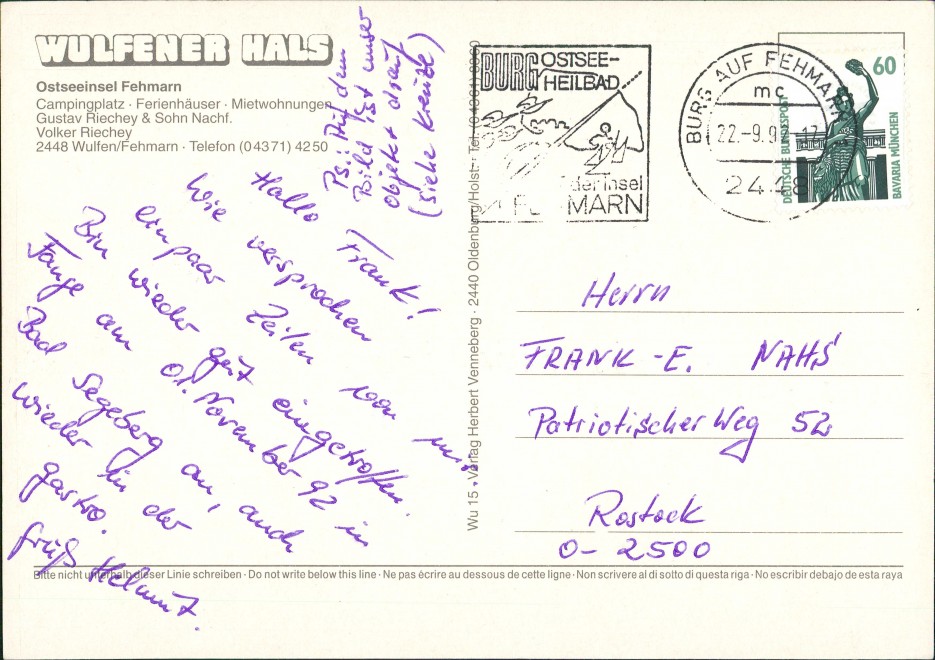 WULFENER HALS
Ostseeinsel Fehmarn
Campingplatz · Ferienhäuser · Mietwohnungen
Gustav Riechey & Sohn Nachf.
Volker Riechey
2448 Wulfen/Fehmarn · Telefon (04371) 4250
Ps.: Auf dem
Bild ist unser
Objekt drauf
(siehe Kreuze)
Hallo Frank!
Wie versprochen
ein paar Zeilen von mir.
Bin wieder gut eingetroffen.
Fange am 01. November 92 in
Bad Segeberg an, auch
wieder in der
Gastro.
Gruß Helmut.
Wu 15 · Verlag Herbert Venneberg · 2440 Oldenburg/Holst · Tel. (04361)
BURG OSTSEE-
HEILBAD
der Insel
MARN
BURG AUF FEHMARN
mc
22.-9.9 -17
2448
60
DEUTSCHE BUNDESPOST
BAVARIA MÜNCHEN
Herrn
FRANK -E. NAHS
Patriotischer Weg 52
Rostock
O- 2500
Bitte nicht unterhalb dieser Linie schreiben · Do not write below this line · Ne pas ècrire au dessous de cette ligne · Non scrivere al di sotto di questa riga · No escribir debajo de esta raya